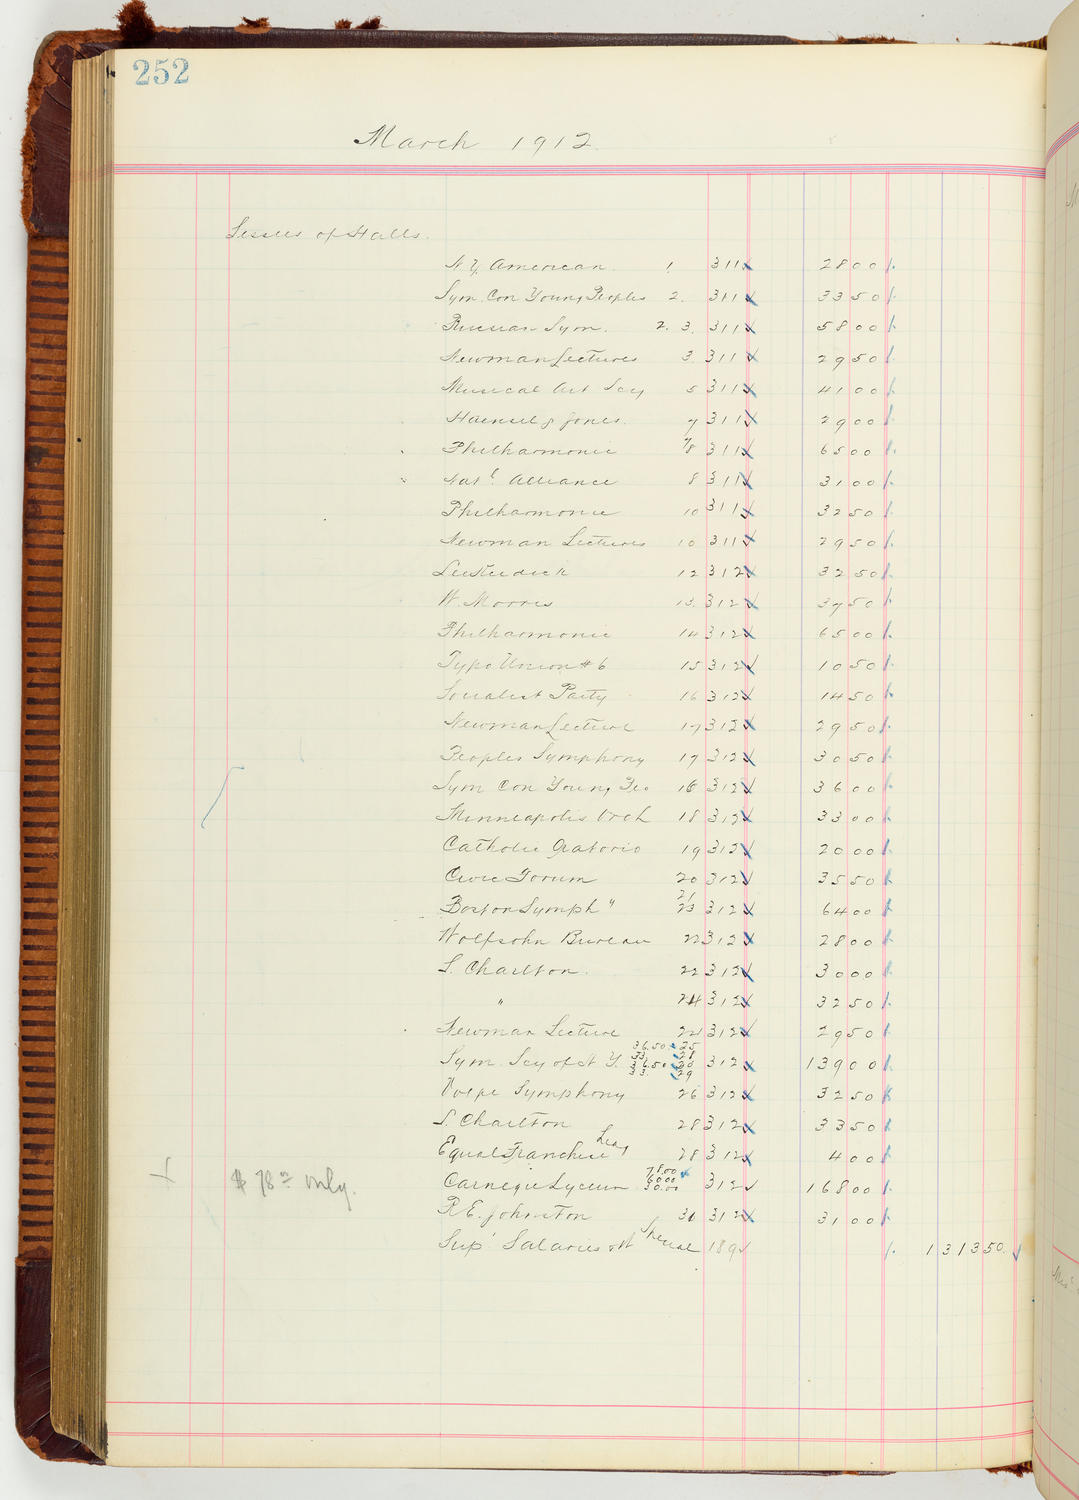 252
March 1912.
Lessees of Halls.
N.Y. American 1. 311 28 00
Sym. Con Young Peoples 2. 311 33 50
Russian Sym. 2. 3. 311 58 00
Newman Lectures 3 311 29 50
Musical Art Socy 5 311 41 00
Haensel & Jones. 7 311 29 00
Philharmonic 7/8 311 65 00
Natl. Alliance 8 311 31 00
Philharmonic 10 311 32 50
Newman Lectures 10 311 29 50
12 312 32 50
W. Morris 13. 312 37 50
Philharmonic 14 312 65 00
Typo Union #6 15 312 10 50
Socialist Party 16 312 14 50
Newman Lecture 17 312 29 50
Peoples Symphony 17 312 30 50
Sym Con Young Peo 16 312 36 00
Minneapolis Orch 18 312 33 00
Catholic Oratorio 19 312 20 00
Civic Forum 20 312 35 50
Boston Symph " 21 23 312 64 00
Wolfsohn Bureau 22 312 28 00
L. Charlton. 22 312 30 00
" 24 312 32 50
Newman Lecture 24 312 29 50
Sym. Scy of N.Y. 36.50 25 28 29 312 139 00
Volpe Symphony 26 312 32 50
L. Charlton 28 312 33 50
Equal Franchise Leag 28 312 4 00
$78.00 only. Carnegie Lyceum 78.00 60.00 30.00 312 168 00
R.E. Johnston 31 312 31 00
Sup' Salaries of H Special 189 1313 50